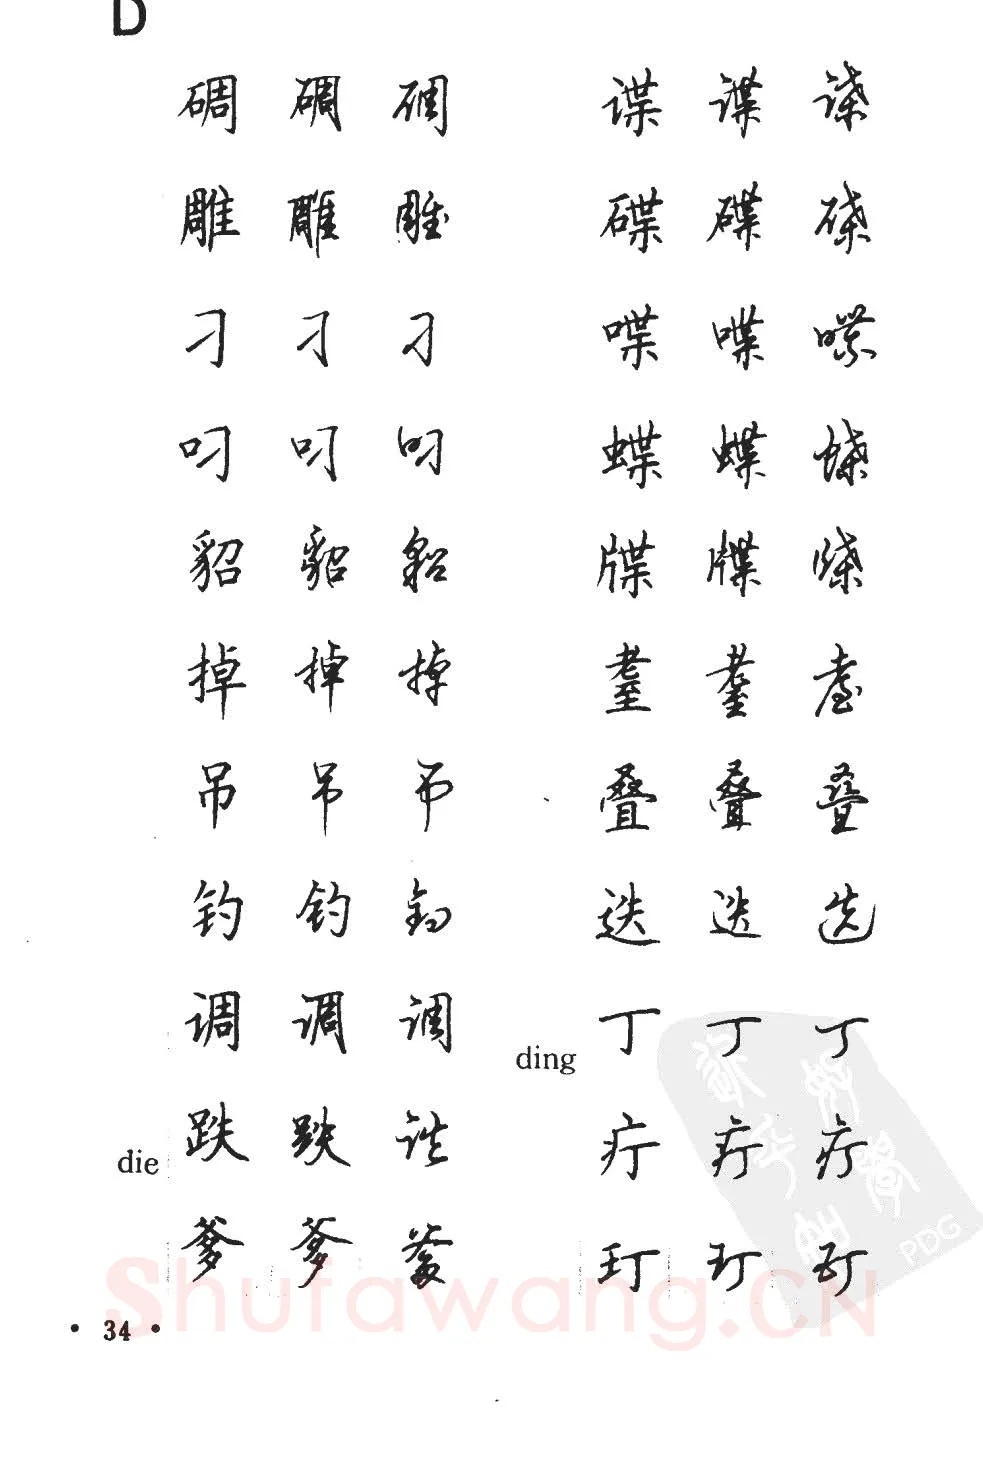 D
碉 碉 碉
雕 雕 雕
刁 刁 刁
叼 叼 叼
貂 貂 貂
掉 掉 掉
吊 吊 吊
钓 钓 钓
调 调 调
die 跌 跌 跌
爹 爹 爹
谍 谍 谍
碟 碟 碟
喋 喋 喋
蝶 蝶 蝶
牒 牒 牒
耋 耋 耋
叠 叠 叠
迭 迭 迭
ding 丁 丁 丁
疔 疔 疔
玎 玎 玎
PDG
Shufawang.CN
• 34 •